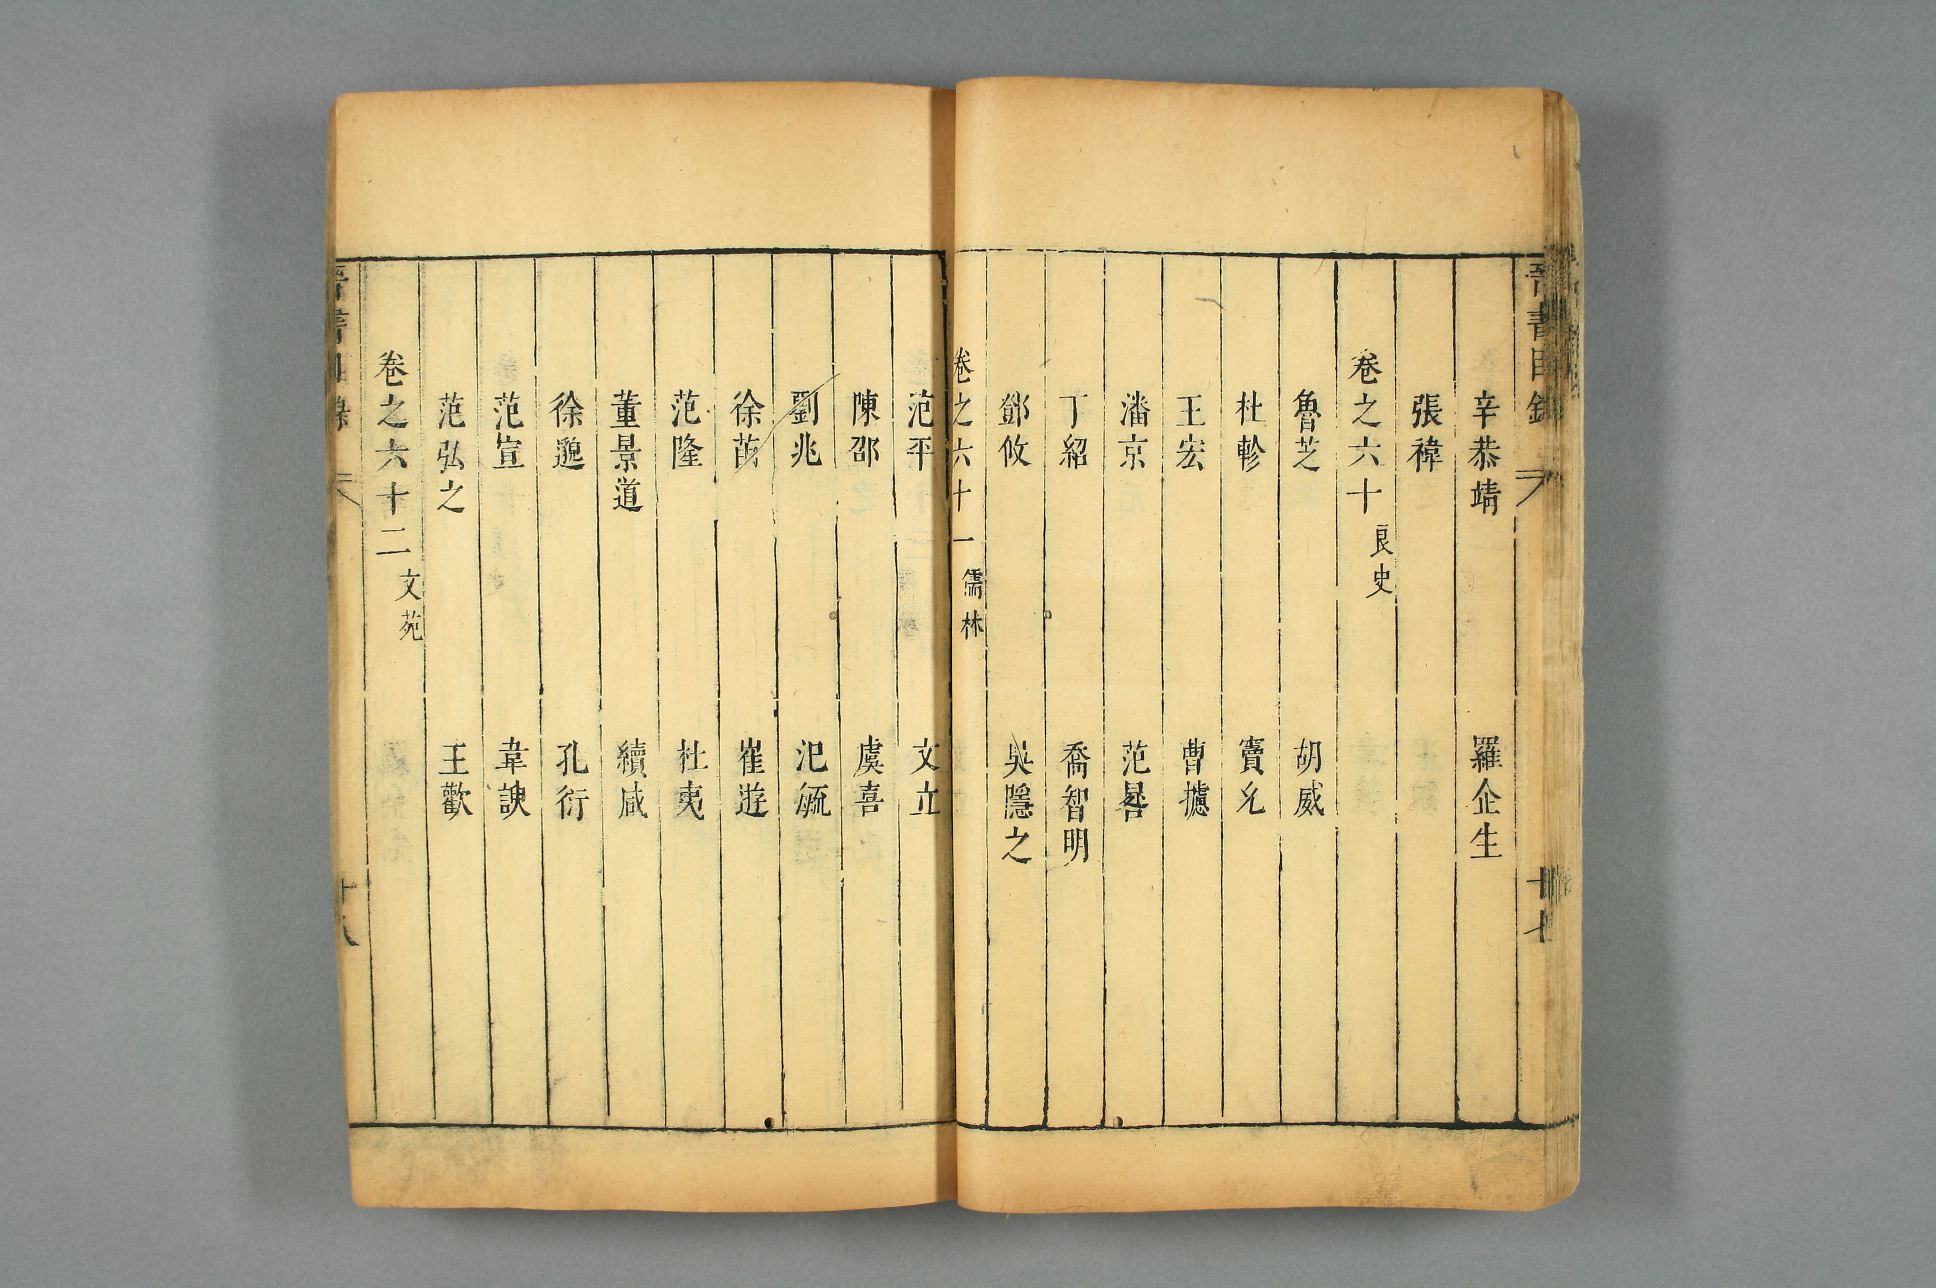 晉書目錄
十七
辛恭靖 羅企生
張禕
卷之六十 良史
魯芝 胡威
杜軫 竇允
王宏 曹攄
潘京 范晷
丁紹 喬智明
鄧攸 吳隱之
卷之六十一 儒林
范平 文立
陳邵 虞喜
劉兆 氾毓
徐苗 崔遊
范隆 杜夷
董景道 續咸
徐邈 孔衍
范宣 韋謏
范弘之 王歡
卷之六十二 文苑
十八